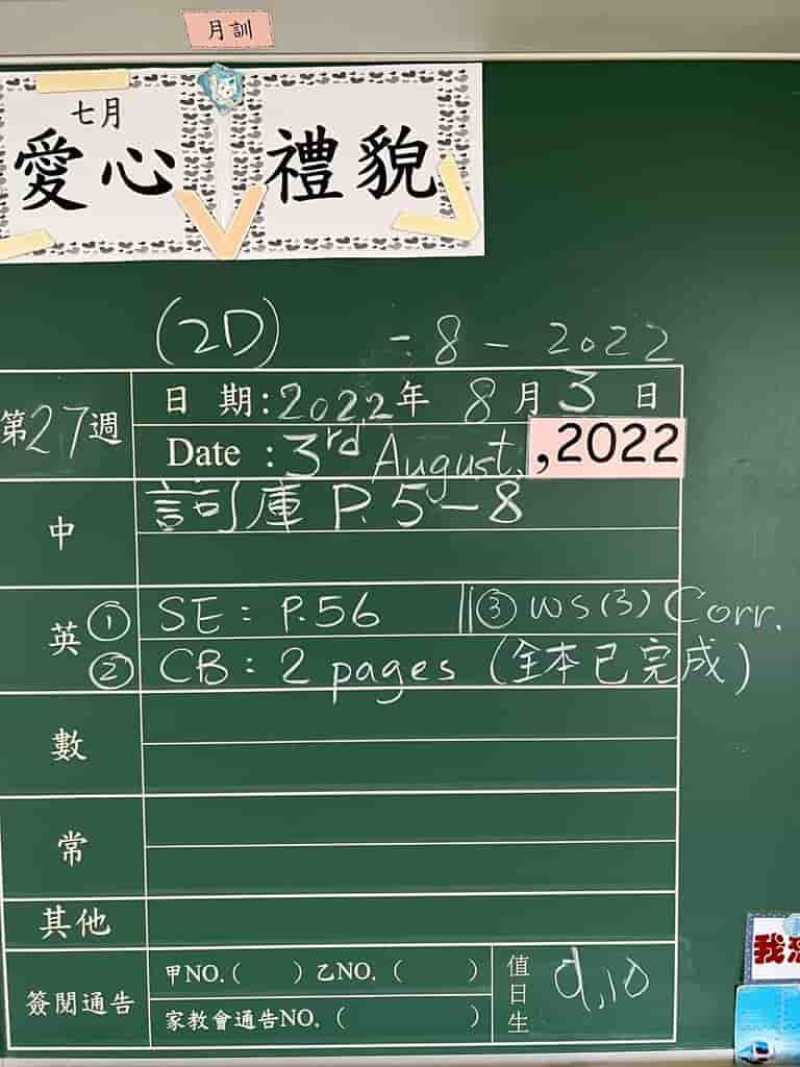 月訓
七月
愛心 禮貌
(2D) -8-2022
第27週
日 期:2022年 8月3日
Date :3rd August, ,2022
中
詞庫 P.5-8
英
① SE: P.56 ||③ WS(3) Corr.
② CB: 2 pages (全本已完成)
數
常
其他
簽閱通告
甲NO.( )乙NO.( )
家教會通告NO.( )
值日生
9,10
我